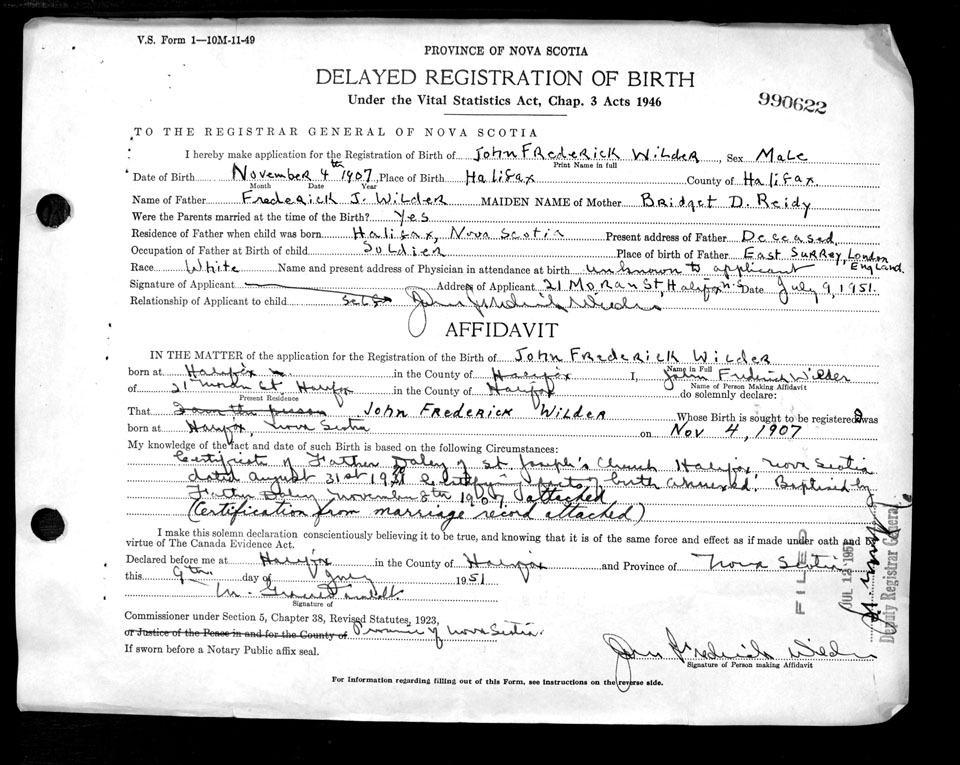 V.S. Form 1—10M-11-49
PROVINCE OF NOVA SCOTIA
DELAYED REGISTRATION OF BIRTH
Under the Vital Statistics Act, Chap. 3 Acts 1946
990622
TO THE REGISTRAR GENERAL OF NOVA SCOTIA
I hereby make application for the Registration of Birth of John Frederick Wilder, Sex Male
Print Name in full
Date of Birth November 4th 1907, Place of Birth Halifax County of Halifax.
Month Date Year
Name of Father Frederick J. Wilder MAIDEN NAME of Mother Bridget D. Reidy
Were the Parents married at the time of the Birth? Yes
Residence of Father when child was born Halifax, Nova Scotia Present address of Father Deceased
Occupation of Father at Birth of child Soldier Place of birth of Father East Surrey, London England.
Race White Name and present address of Physician in attendance at birth unknown to applicant
Signature of Applicant Address of Applicant 21 Moran St, Halifax N.S Date July 9, 1951.
Relationship of Applicant to child Self John Frederick Wilder
AFFIDAVIT
IN THE MATTER of the application for the Registration of the Birth of John Frederick Wilder
Name in Full
born at Halifax in the County of Halifax I, John Frederick Wilder
Name of Person Making Affidavit
of 21 Moran St Halifax in the County of Halifax do solemnly declare:
Present Residence
That I am the person John Frederick Wilder Whose Birth is sought to be registered was
born at Halifax, Nova Scotia on Nov 4, 1907
My knowledge of the fact and date of such Birth is based on the following Circumstances:
Certificate of Father Daley of St Joseph's Church Halifax Nova Scotia
dated August 31st 1921 certifying facts of birth annexed. Baptised by
Father Daley November 8th 1907 attached
(Certification from marriage record attached)
I make this solemn declaration conscientiously believing it to be true, and knowing that it is of the same force and effect as if made under oath and by
virtue of The Canada Evidence Act.
Declared before me at Halifax in the County of Halifax and Province of Nova Scotia
this 9th day of July 1951
Signature of
Commissioner under Section 5, Chapter 38, Revised Statutes, 1923,
or Justice of the Peace in and for the County of Province of Nova Scotia.
If sworn before a Notary Public affix seal.
John Frederick Wilder
Signature of Person making Affidavit
For Information regarding filling out of this Form, see instructions on the reverse side.
FILED
JUL 12 1951
Deputy Registrar General